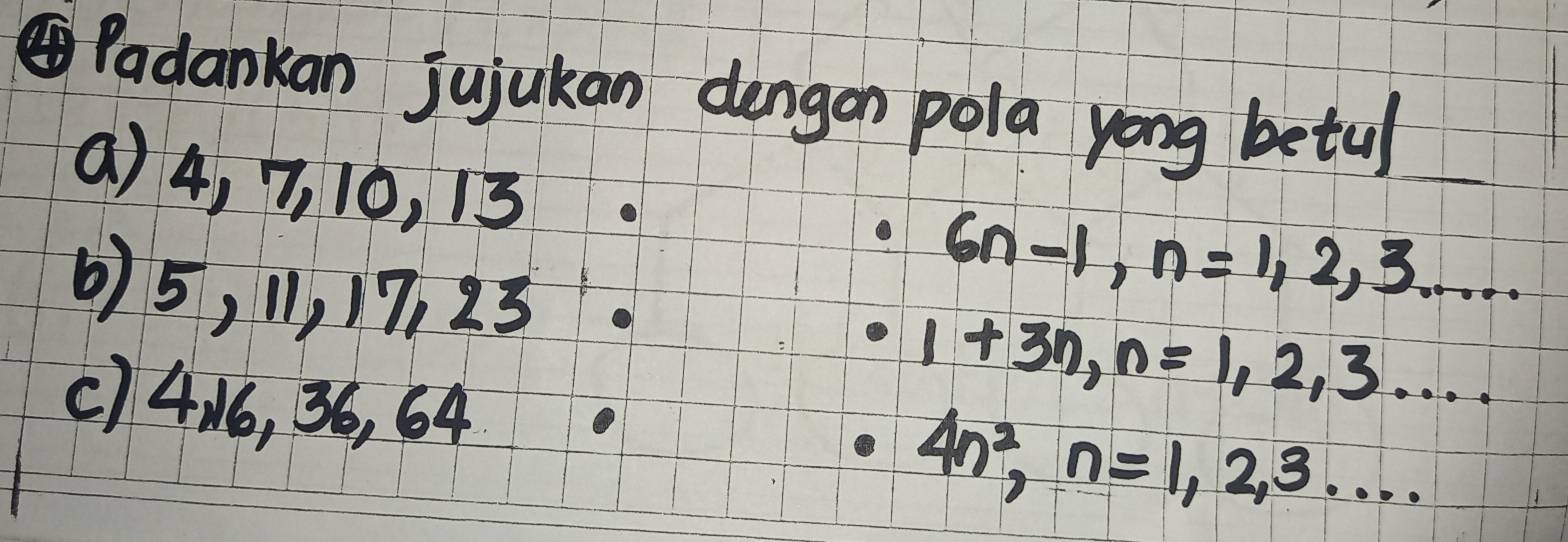 ④ Padankan jujukan dengan pola yang betul
a) 4, 7, 10, 13 • • 6n - 1, n = 1, 2, 3.....
b) 5, 11, 17, 23 • • 1 + 3n, n = 1, 2, 3....
c) 4, 16, 36, 64 • • 4n², n = 1, 2, 3....